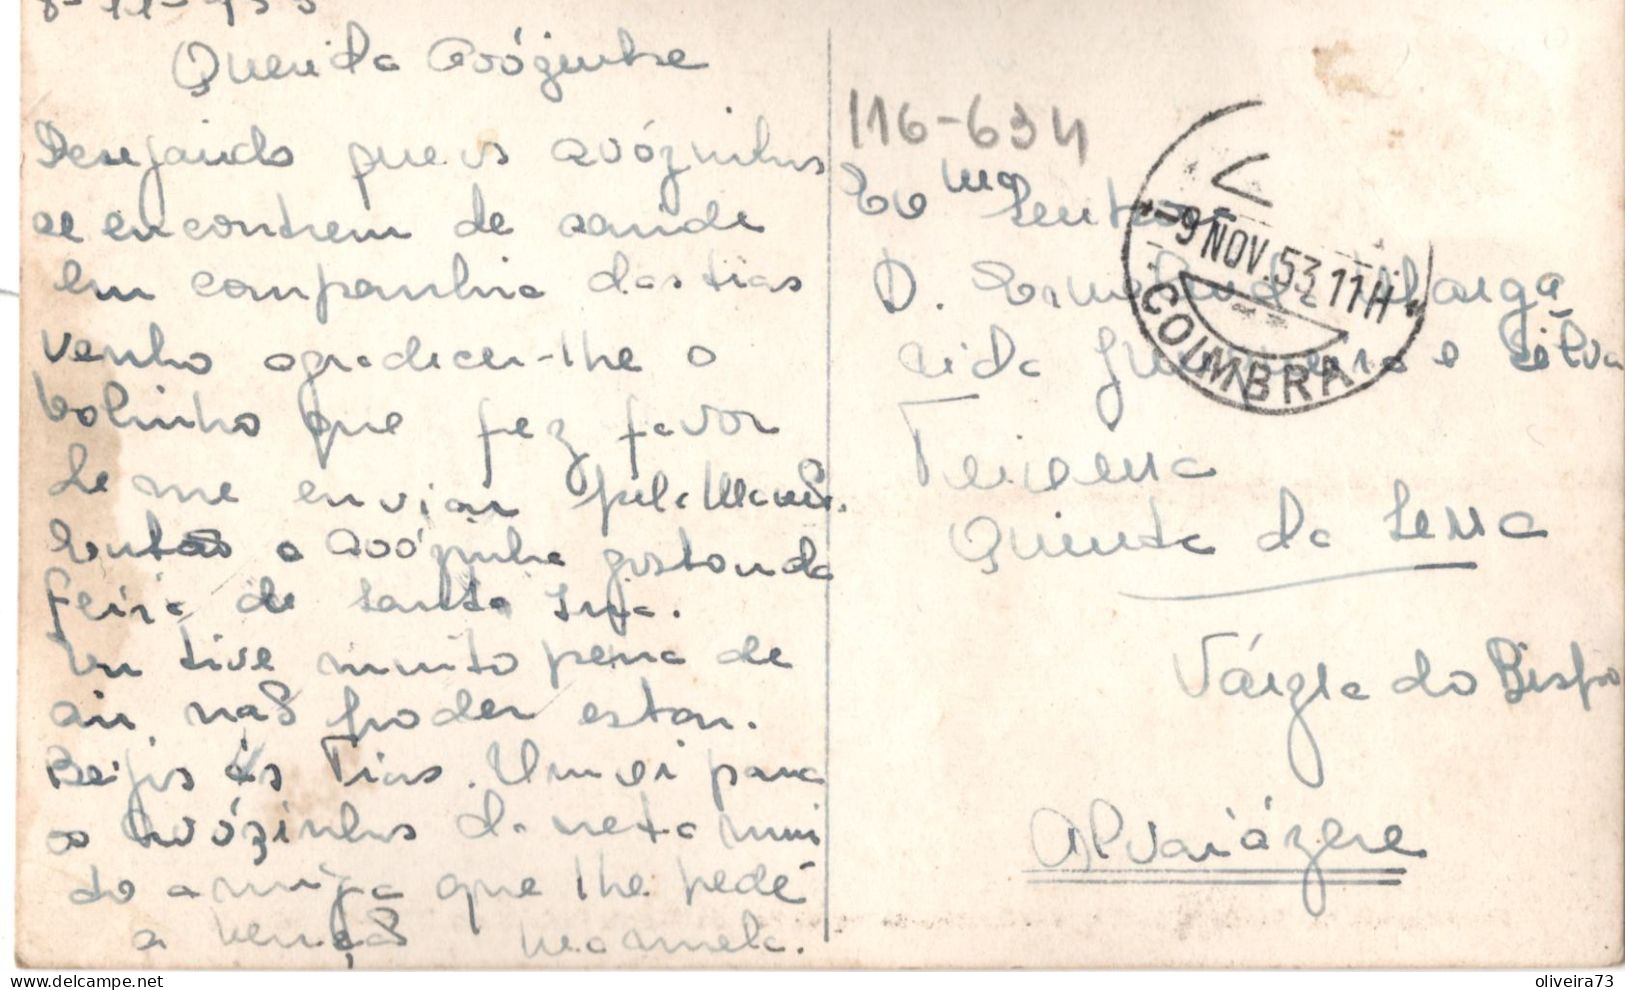 8-11-953
Querida Avózinha
Desejando que os avózinhos
se encontrem de saude
em companhia das tias
venho agradecer-lhe o
bolinho que fez favor
de me enviar pela
Então a avózinha gostou da
feira de Santa
Eu tive muito pena de
aii não poder estar.
Beijos ás Tias. Um oi para
os Avózinhos da neta mui
to amiga que lhe pede
a benção Manuela.
116-634
Exma Senhora
D. Marga
rida e Silva
Teixeira
Quinta da Serra
Várgea do Bispo
Alvaiázere
-9 NOV. 53 11H
COIMBRA
oliveira73